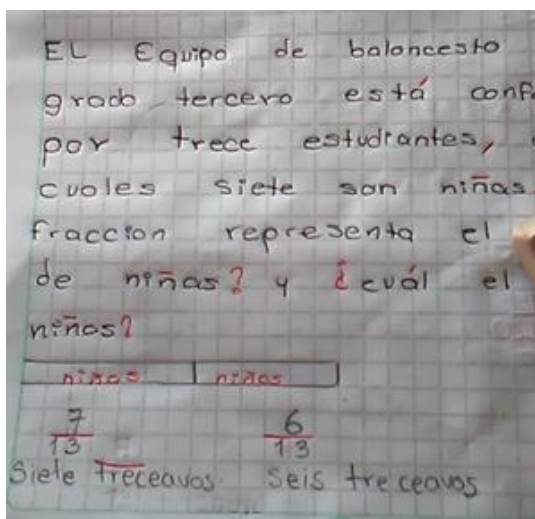 EL Equipo de baloncesto
grado tercero está conf
por trece estudiantes,
cuales siete son niñas.
fraccion representa el
de niñas? y ¿cuál el
niños?
niñas niños
7/13 6/13
Siete treceavos. Seis treceavos